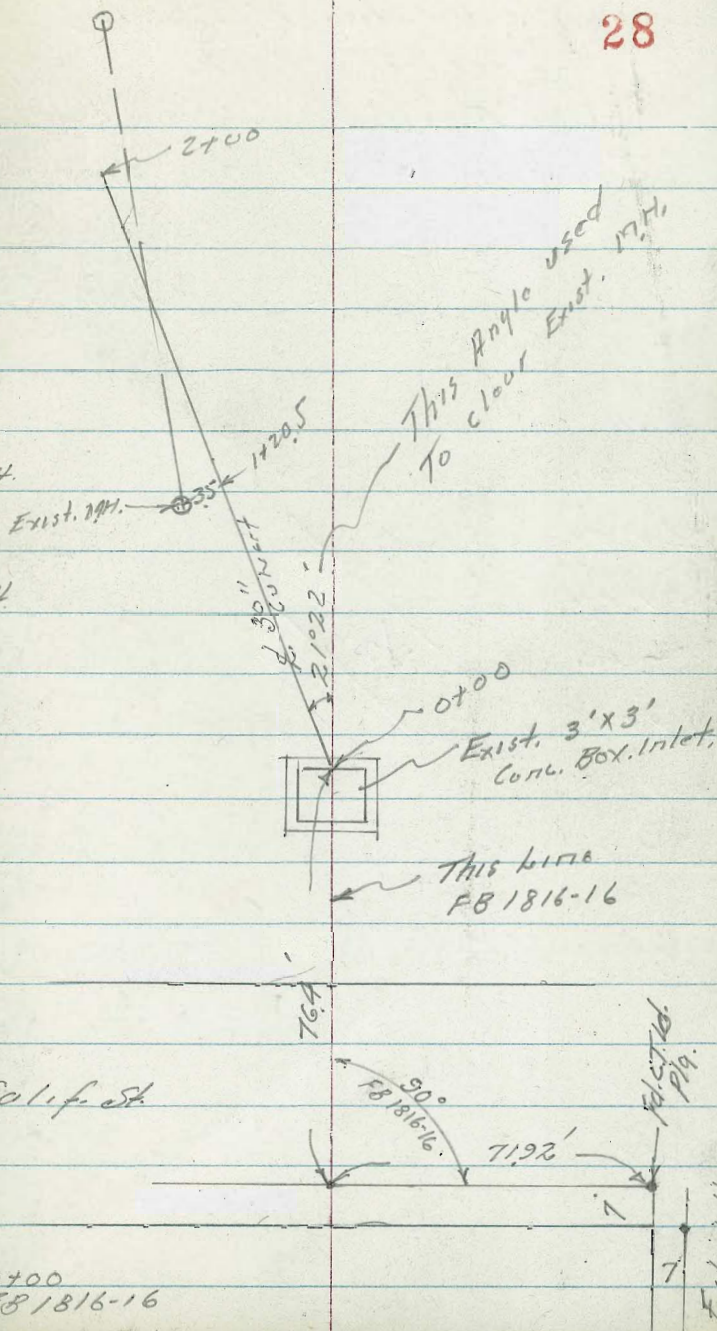 28
2+00
This Angle used
To clear Exist. M.H.
1+20.5
Exist. M.H.
35
℄ 30" Culvert
21°22'
0+00
Exist. 3'x3'
Conc. Box. Inlet.
This Line
FB 1816-16
76.4'
90°
FB 1816-16
Fd. C.T. ld.
Plg.
Calif. St.
71.92'
7'
7
+00
FB 1816-16